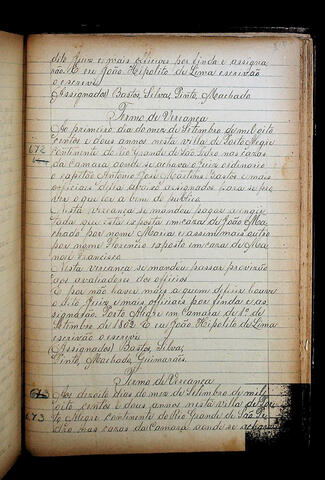 dito Juiz e mais officiaes por finda e assigna
rão. E eu João Hipolito de Lima escrivão
o escrevi
(Assignados) Bastos, Silva, Pinto, Machado
Termo de Vereança
Ao primeiro dia do mez de Setembro de mil oito
centos e dous annos nesta villa de Porto Alegre
672
continente do Rio Grande de São Pedro nas cazas
da Camara aonde se achava o Juiz ordinario
o capitão Antonio José Martins Bastos e mais
officiaes della abaixo assignados para se pro
ver o que for a bem do publico
Nesta vereança se mandou pagar a engei
tada que está exposta em caza de João Ma
chado por nome Maria e assim mais outro
por nome Florencio exposto em caza de Ma
noel Francisco
Nesta vereança se mandou passar provizão
aos avaliadores dos officios
E por não haver mais a quem deferir houve
o dito Juiz e mais officiaes por finda e as
signarão. Porto Alegre em Camara de 1º de
Setembro de 1802. E eu João Hipolito de Lima
escrivão o escrevi
(Assignados) Bastos, Silva,
Pinto, Machado, Guimarães.
Termo de Vereança
Aos dezoito dias do mez de Setembro de mil
oito centos e dous annos nesta villa de Por
673
to Alegre continente do Rio Grande de São Pe
dro nas cazas da Camara aonde se achava